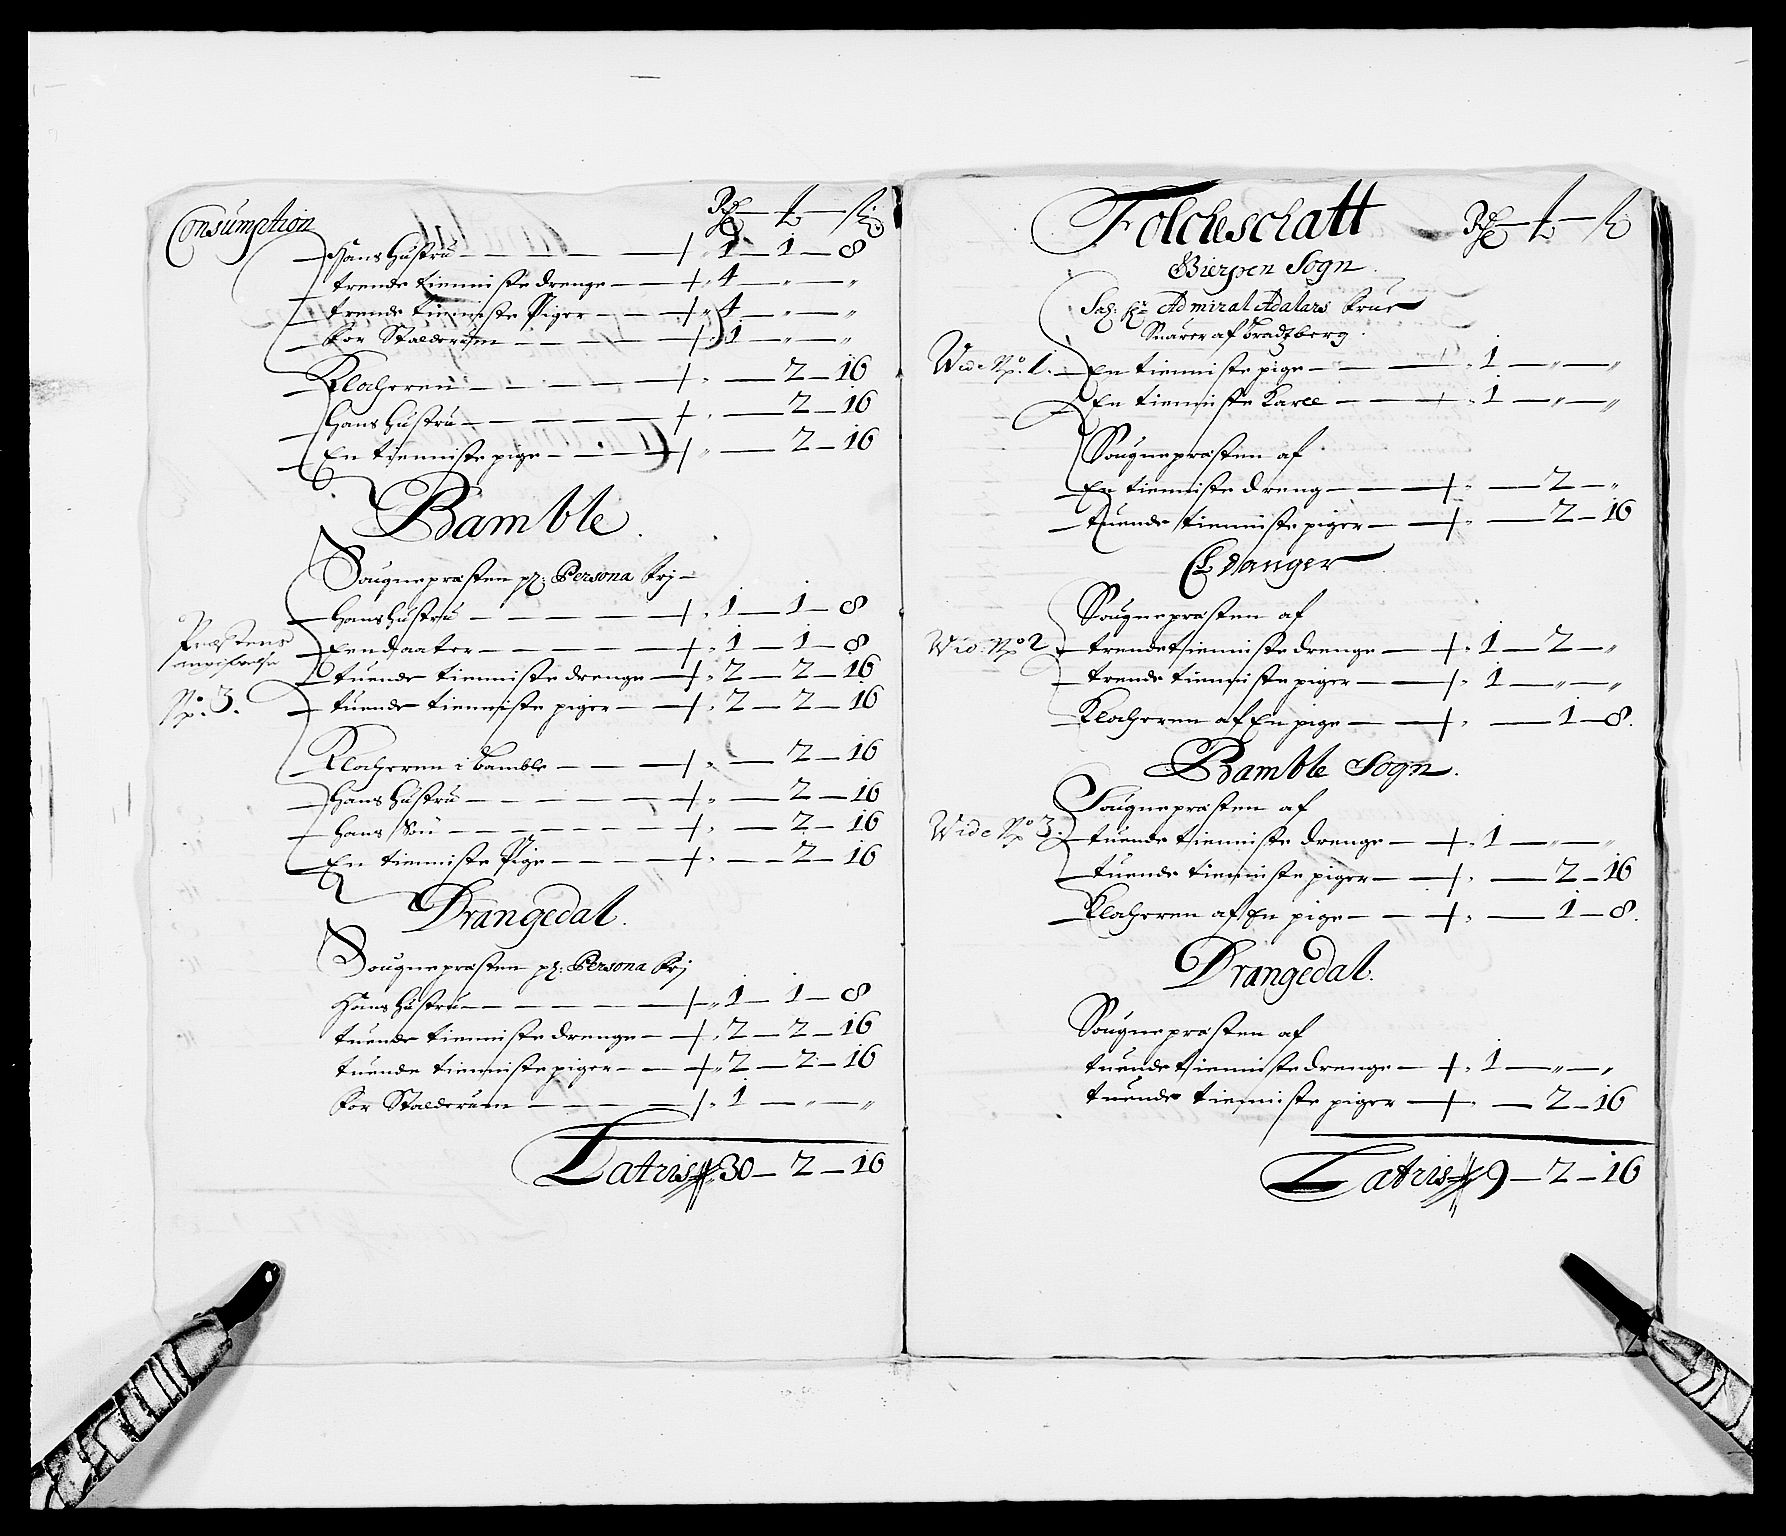 Consumption Rdr — ₰ — ß
Hans Hustru — 1 — 1 — 8
trende tienniste drenge — 4 — " — "
trende tienniste Piger — 4 — " — "
for Stalderum — 1 — " — "
Klocheren — 2 — 16
Hans Hustru — 2 — 16
En tienniste pige — 2 — 16
Bamble.
Sougnepræsten pr: Persona frj —
Hans Hustru — 1 — 1 — 8
Een daater — 1 — 1 — 8
Præstens
No. 3.
tuende tienniste drenge — 2 — 2 — 16
tuende tienniste piger — 2 — 2 — 16
Klocheren i Bamble — 2 — 16
Hans Hustru — 2 — 16
Hans Søn — 2 — 16
En tienniste Pige — 2 — 16
Drangedal.
Sougnepræsten pr: Persona frj
Hans Hustru — 1 — 1 — 8
tuende tienniste drenge — 2 — 2 — 16
tuende tienniste piger — 2 — 2 — 16
for Stalderum — 1 — " — "
Latris 30 — 2 — 16
Folcheschatt Rdr — ₰ — ß
Bierpen Sogn.
Sal: Hr Admiral Adalars frue
Suarer af Bradtzberg.
Wide No. 1. En tienniste pige — 1 — " — "
En tienniste Karll — 1 — " — "
Sougnepræsten af
En tienniste dreng — 2 — "
tuende tienniste piger — 2 — 16
Edanger
Sougnepræsten af
Wid: No 2 trende tienniste drenge — 1 — 2 — "
trende tienniste piger — 1 — " — "
Klocheren af En pige — 1 — 8.
Bamble Sogn.
Sougnepræsten af
Wide No 3. tuende tienniste drenge — 1 — " — "
tuende tienniste piger — 2 — 16
Klocheren af En pige — 1 — 8.
Drangedal.
Sougnepræsten af
tuende tienniste drenge — 1 — " — "
tuende tienniste piger — 2 — 16
Latris 9 — 2 — 16